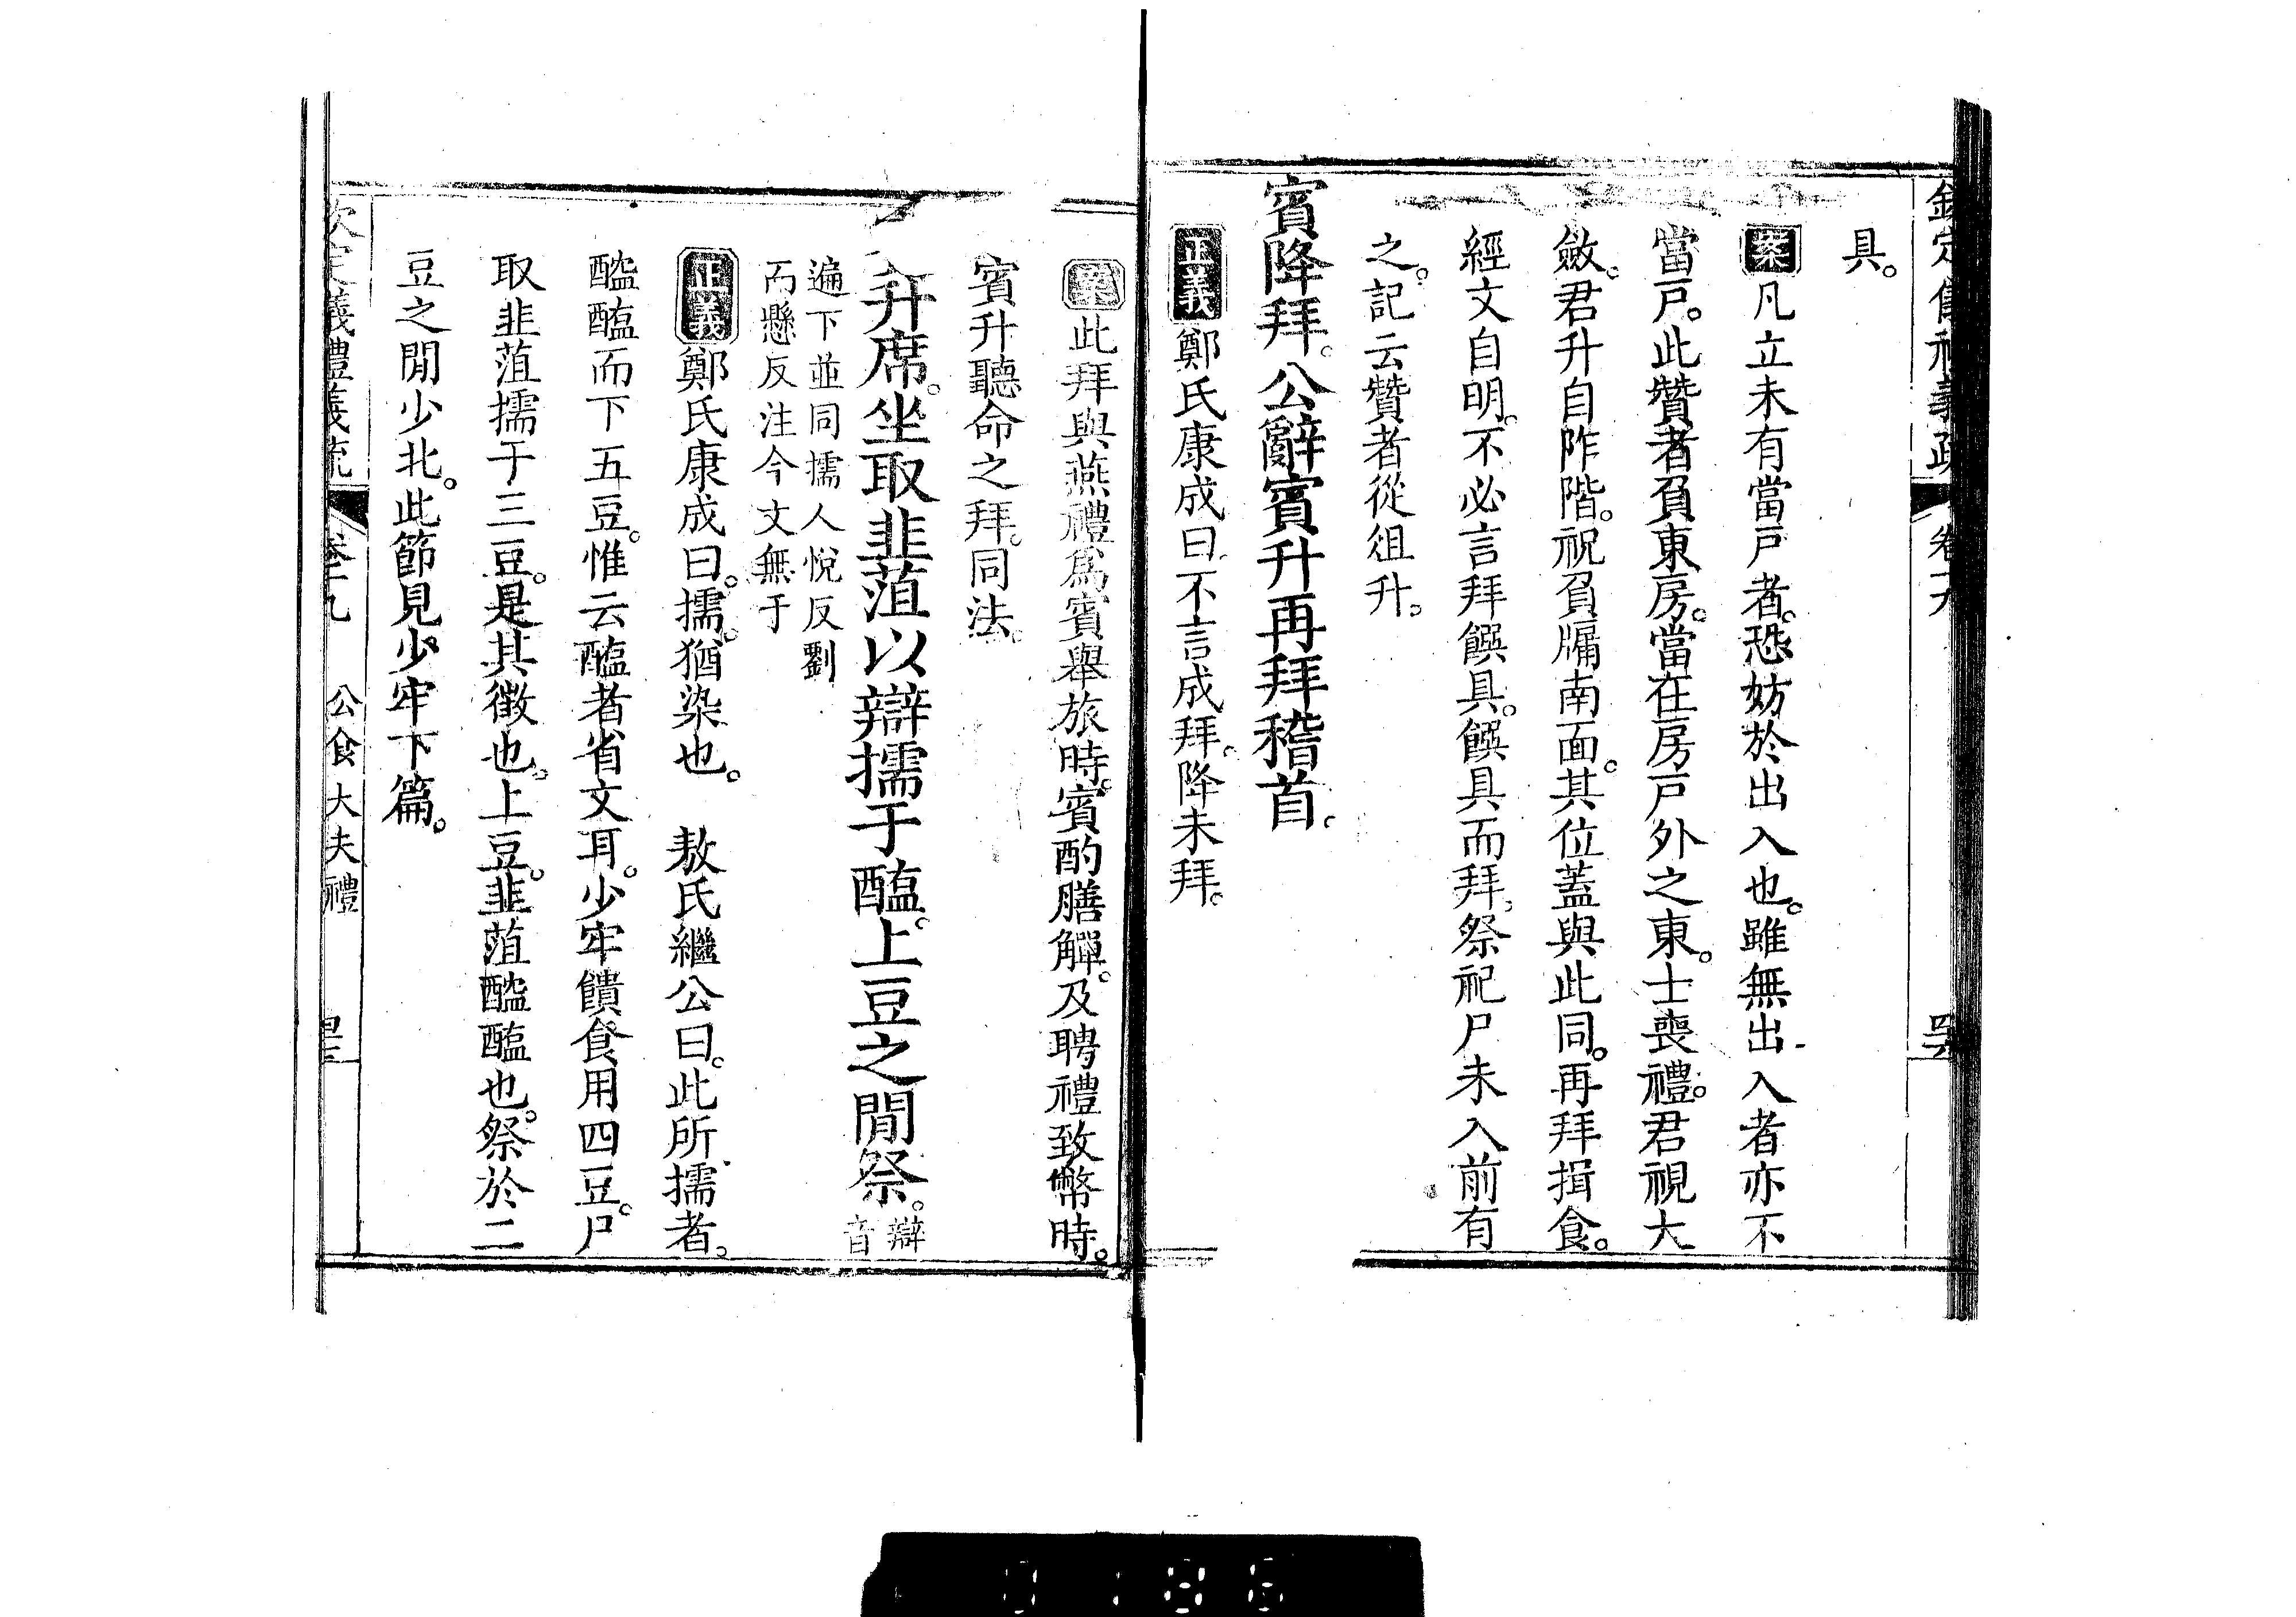 具。
案凡立未有當戸者。恐妨於出入也。雖無出入者亦不
當戸。此贊者負東房。當在房戸外之東。士喪禮。君視大
斂。君升自阼階。祝負墉南面。其位蓋與此同。再拜揖食。
經文自明。不必言拜饌具。饌具而拜。祭祀尸未入前有
之。記云贊者從俎升。
賓降拜。公辭賓升再拜稽首。
正義鄭氏康成曰不言成拜。降未拜。
案此拜與燕禮爲賓舉旅時。賓酌膳觶。及聘禮致幣時。
賓升聽命之拜。同法。
升席。坐取韭菹以辯擩于醢。上豆之閒祭。辯音
遍下並同擩人悅反劉
而懸反注今文無于
正義鄭氏康成曰。擩。猶染也。 敖氏繼公曰。此所擩者。
醓醢而下五豆。惟云醢者省文耳。少牢饋食用四豆。尸
取韭菹擩于三豆。是其徵也。上豆。韭菹醓醢也。祭於二
豆之閒少北。此節見少牢下篇。
公食大夫禮